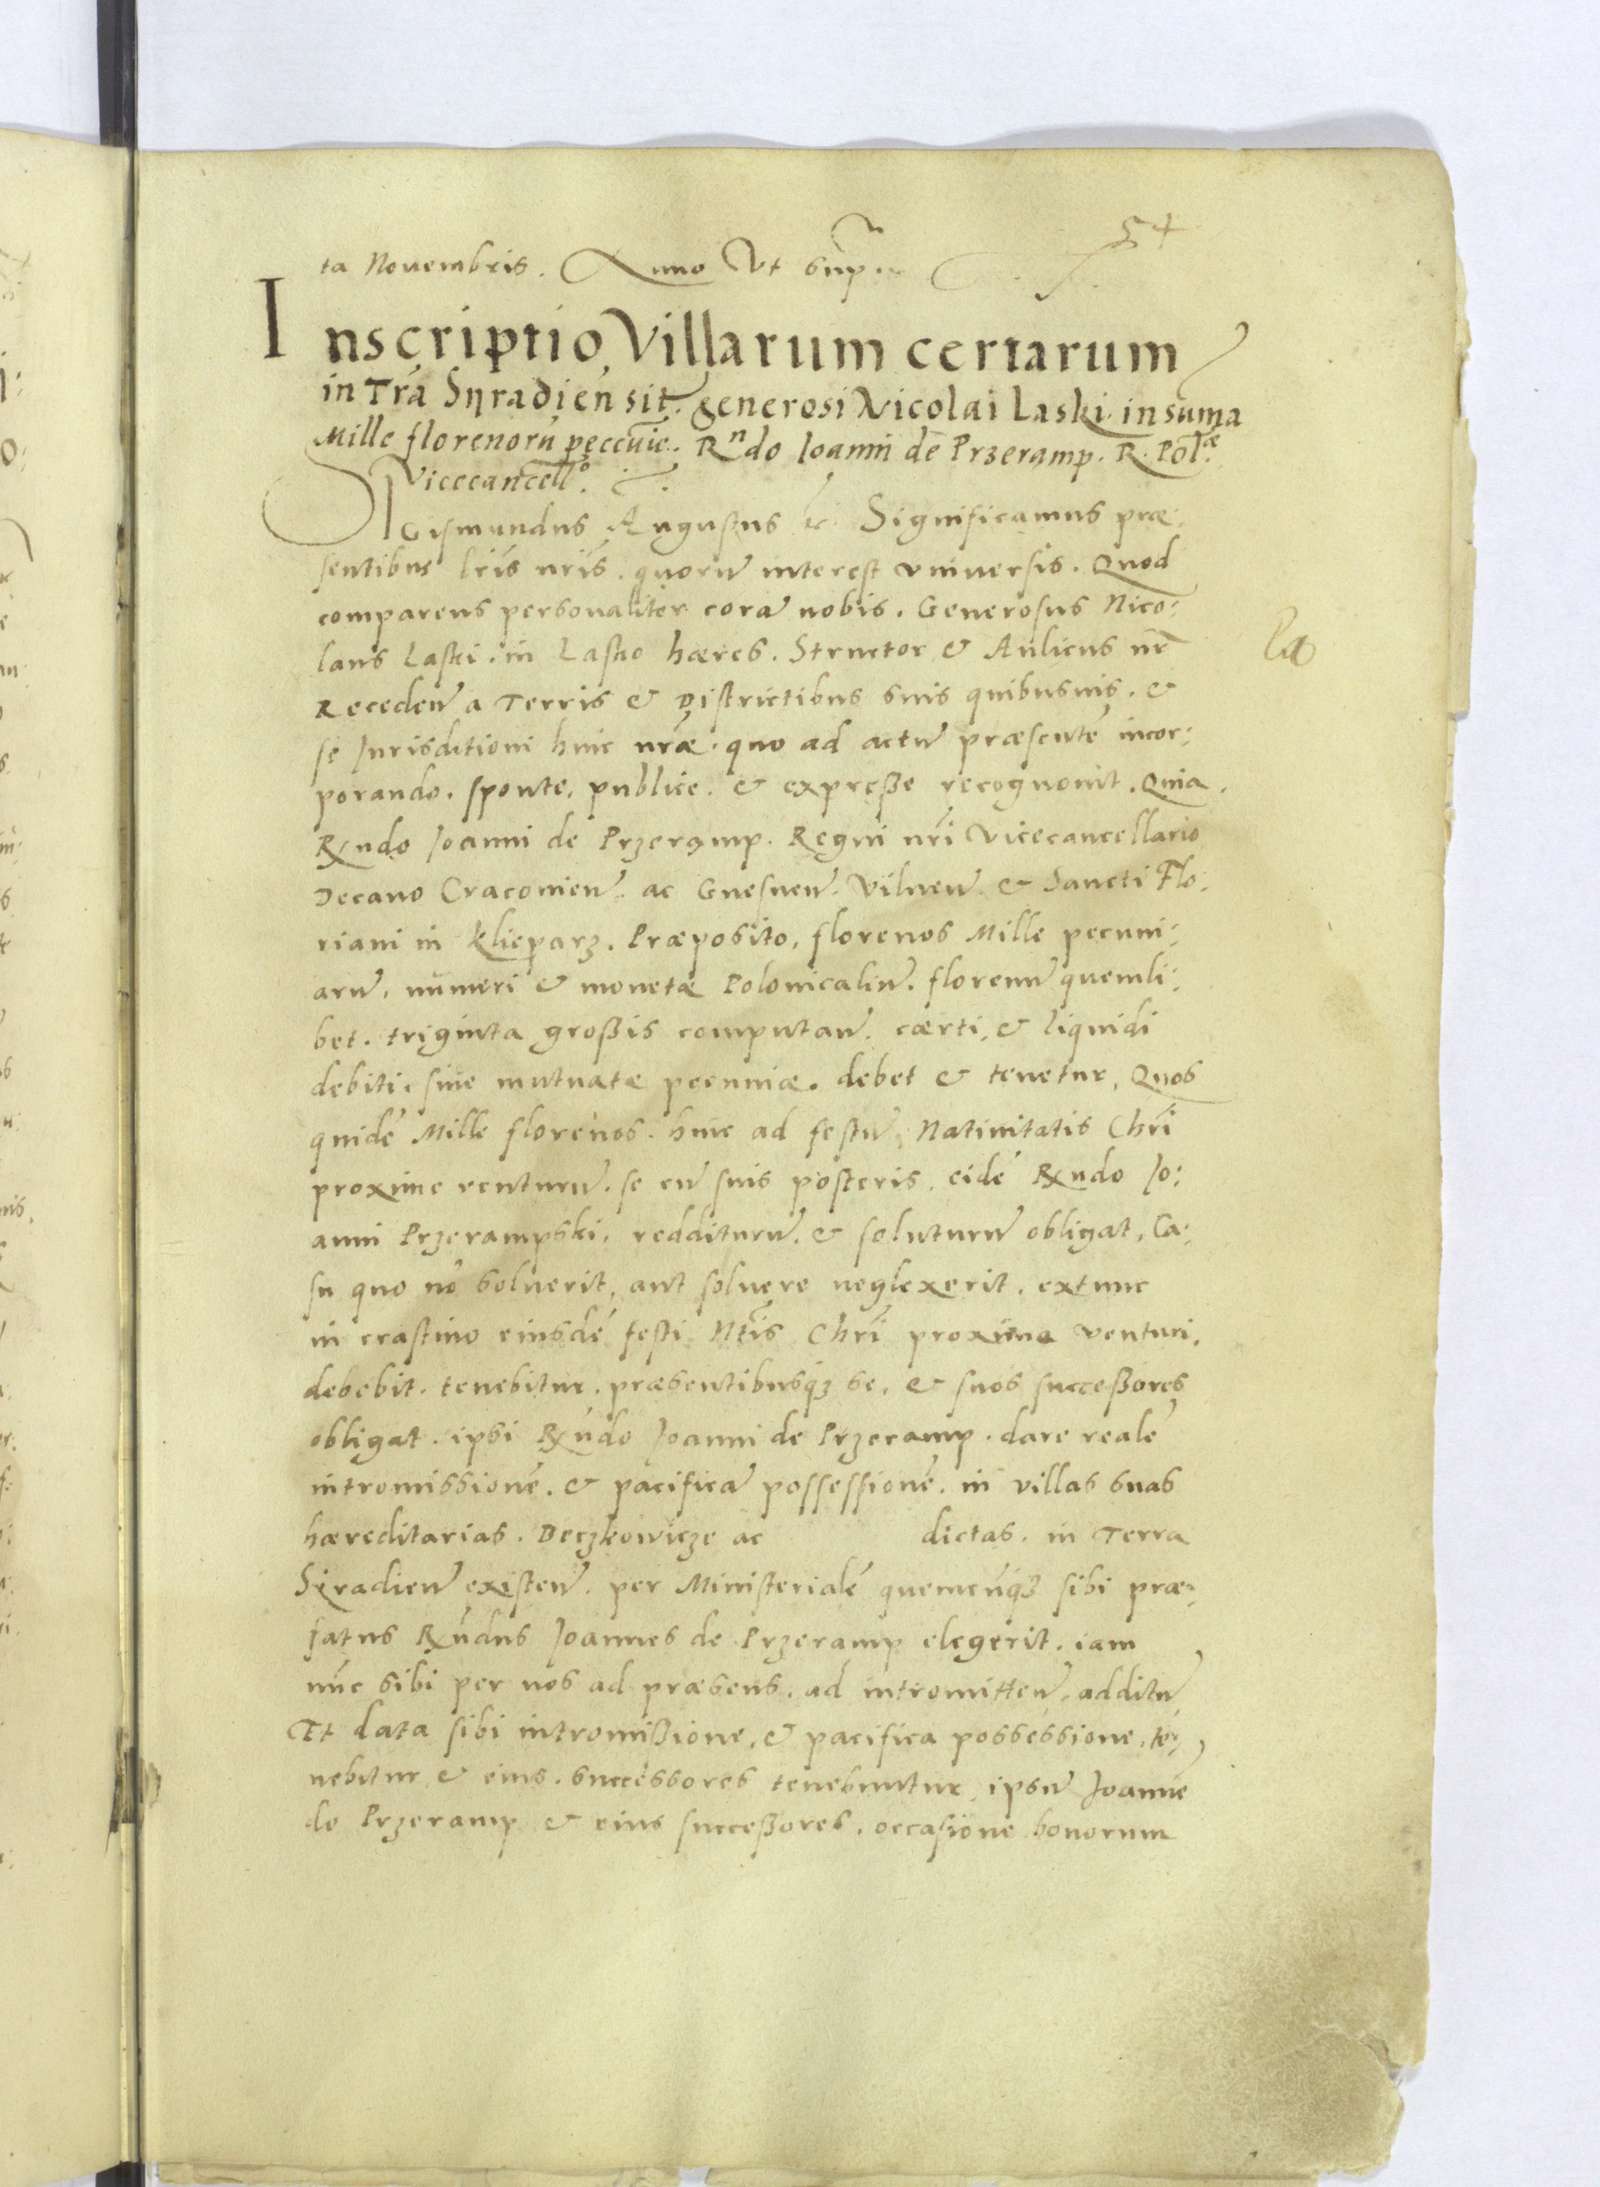 54
ta Nouembris. Anno Vt sup̃
Inscriptio Villarum certarum
in Tr̃a Syradien̄ sit. generosi Nicolai Laski in sum̃a
Mille florenorū peccunie. Rⁿdo Ioanni de Przeramp. R. Pol̃æ
Vicecancellº.
SIGismundus Augustus &c. Significamus præ:
sentibus lr̃is nr̃is. quorum̃ interest vniuersis. Quod
comparens personaliter cora͂ nobis. Generosus Nico:
laus Laski. in Lasko hæres. Structor & Aulicus nr̃
Receden̄ a Terris & Districtibus suis quibusuis. &
se Iurisditioni huic nr̃æ. quo ad actu͂ præsente͂ incor:
porando. sponte, publice. & expreße recognouit. Quia.
Rx̃ndo Ioanni de Przeramp. Regni nr̃i Vicecancellario
Decano Cracouien̄. ac Gnesnen̄. Vilnen̄. & Sancti Flo:
riani in Klieparz. Præposito, florenos Mille pecuni:
aru͂. numeri & monetæ Polonicaliu͂. florenu͂ quemli:
bet. triginta großis computan̄. cærti. & liquidi
debiti. siue mutuatæ pecuniæ. debet & tenetur. Quos
quide͂ Mille florenos. hinc ad festu͂ Natiuitatis Chr̃i
proxime venturu͂. se cu͂ suis posteris. eide͂ Rx̃ndo Io:
anni Przerampski. redditurum̃. & soluturum̃ obligat. Ca:
su quo no͂ soluerit, aut soluere neglexerit. extunc
in crastino eiusde͂ festi Nt̃is Chr̃i proxime venturi.
debebit. tenebitur. præsentibusq́ꝫ se. & suos succeßores
obligat. ipsi Rx̃ndo Ioanni de Przeramp. dare reale͂
intromissione͂. & pacifica͂ possessione͂. in villas suas
hæreditarias. Deczkowicze ac dictas. in Terra
Siradien̄ existen̄. per Ministeriale͂ quemcu͂q́ꝫ sibi præ:
fatus Rx̃ndus Ioannes de Przeramp elegerit. iam
nu͂c sibi per nos ad præsens. ad intromitten̄. additu͂
Et data sibi intromißione, & pacifica possessione. te:
nebitur & eius. successores tenebuntur. ipsu͂ Ioanne͂
de Przeramp & eius succeßores. occasione bonorum